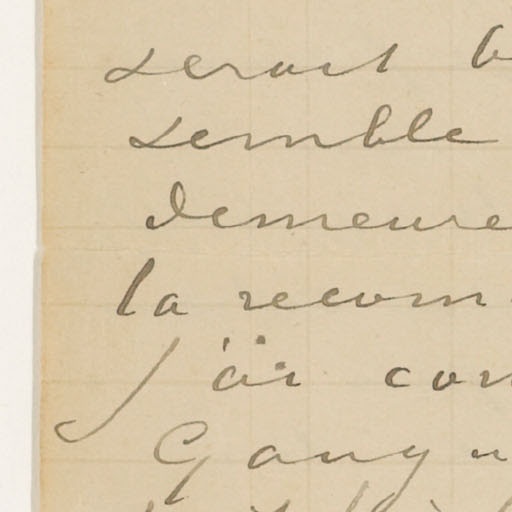 serait b
semble
demeure
la recom
j'ai con
Gangu